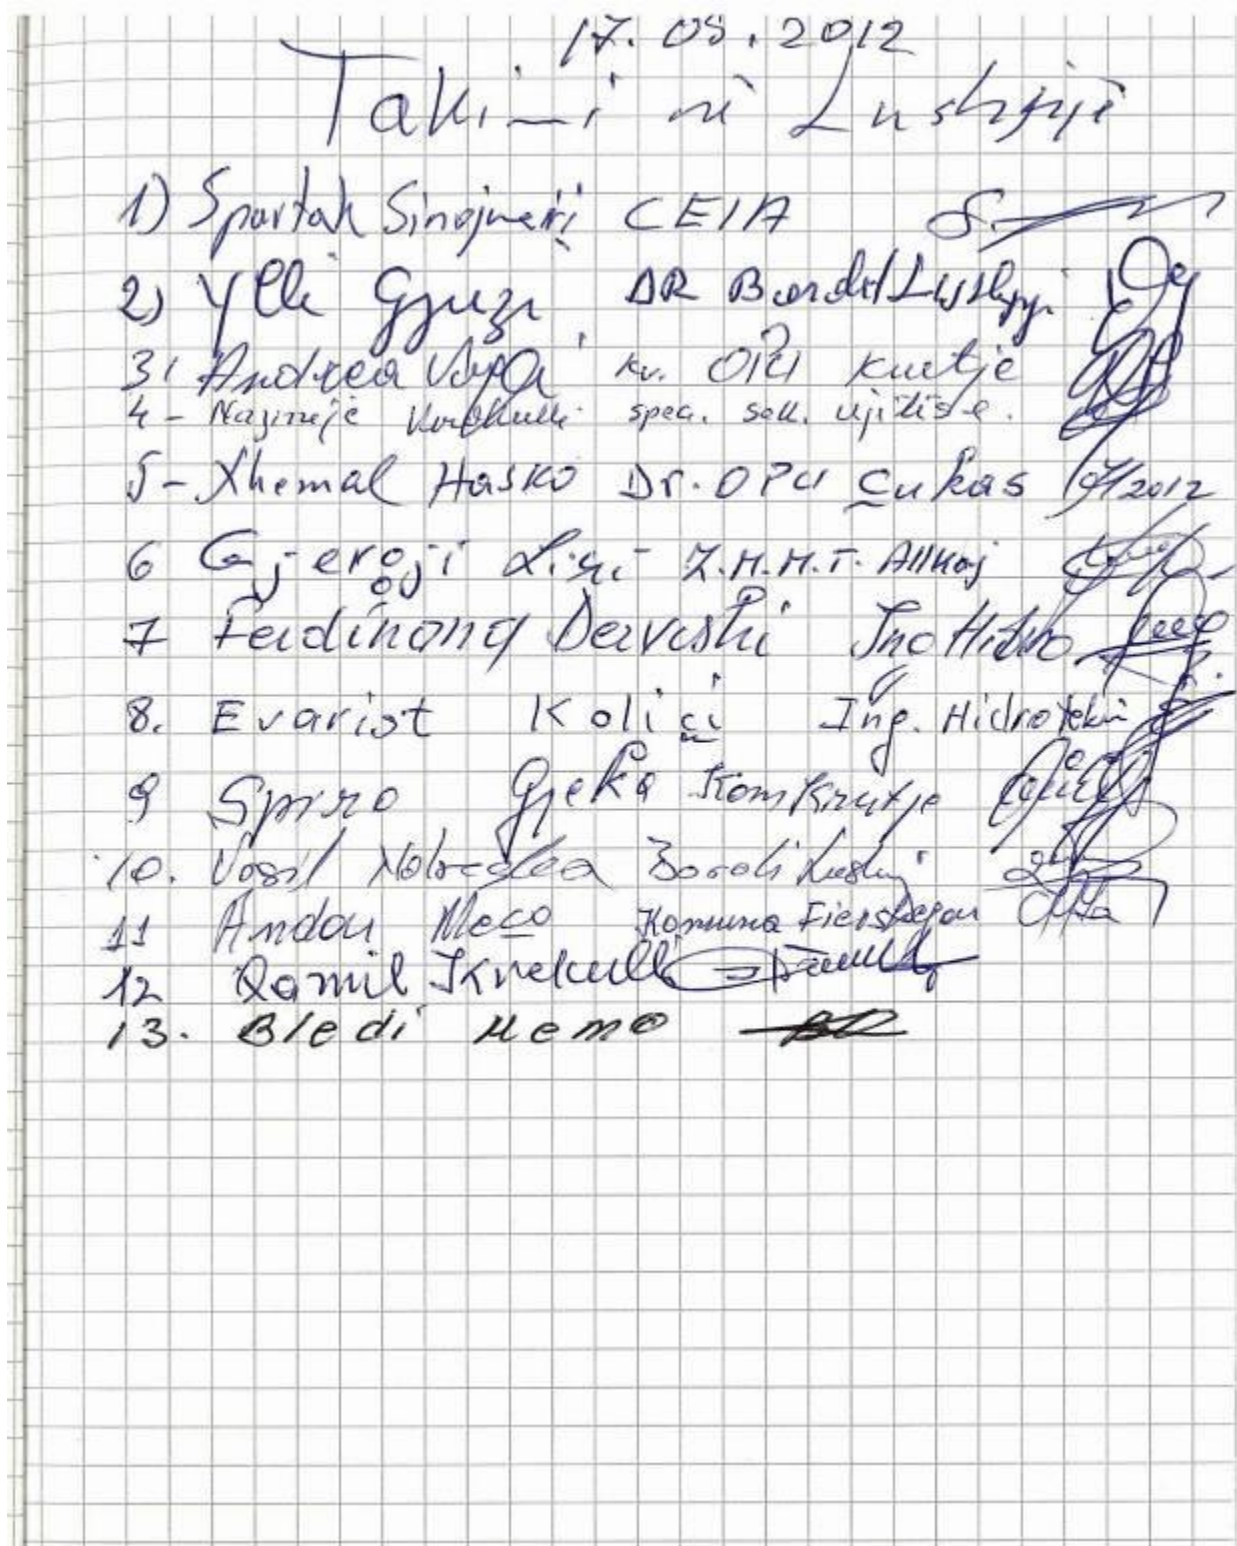 17.05.2012
Takimi në Lushnjë
1) Spartak Sinojmeri CEIA
2) Ylli Gjuzi DR Bordit Lushnje
3) Andrea OPU Krutje
4 - Nazmije spec. sek. ujitise.
5 - Xhemal Hasko Dr. OPU Çukas 2012
6 Gjergji Liçi Z.M.M.T. Allkaj
7 Ferdinand Dervishi Ing Hidro
8. Evarist Koliçi Ing. Hidrotekni
9 Spiro Gjeka Kom Krutje
10. Vasil Bordi Lushnj
11 Andon Meço Komuna Fiershegan
12 Qamil Kurekulli
13. Bledi Memo